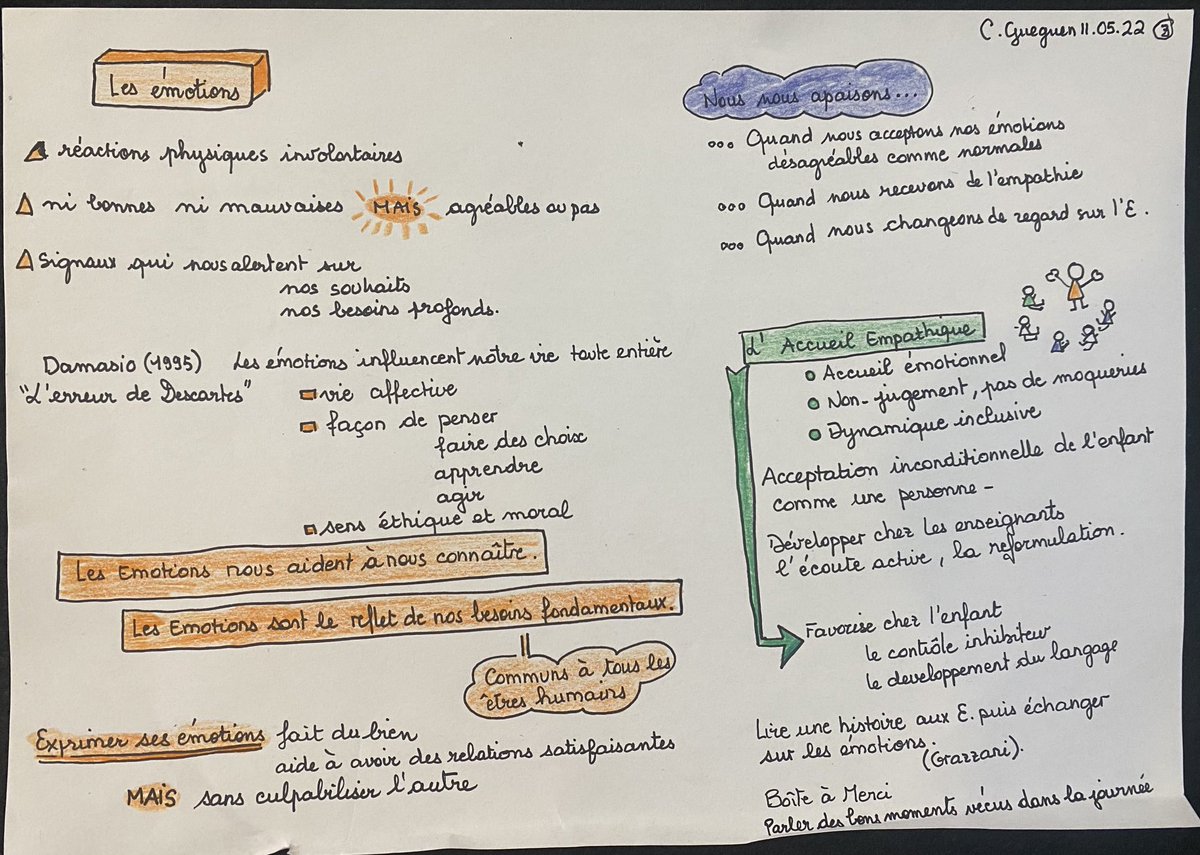 C. Gueguen 11.05.22 3
Les émotions
réactions physiques involontaires
ni bonnes ni mauvaises MAIS agréables ou pas
Signaux qui nous alertent sur
nos souhaits
nos besoins profonds.
Damasio (1995) Les émotions influencent notre vie toute entière
"L'erreur de Descartes"
vie affective
façon de penser
faire des choix
apprendre
agir
sens éthique et moral
Les Emotions nous aident à nous connaître.
Les Emotions sont le reflet de nos besoins fondamentaux.
Communs à tous les
êtres humains
Exprimer ses émotions fait du bien
aide à avoir des relations satisfaisantes
MAIS sans culpabiliser l'autre
Nous nous apaisons...
Quand nous acceptons nos émotions
désagréables comme normales
Quand nous recevons de l'empathie
Quand nous changeons de regard sur l'E.
L' Accueil Empathique
Accueil émotionnel
Non-jugement, pas de moqueries
Dynamique inclusive
Acceptation inconditionnelle de l'enfant
comme une personne -
Développer chez les enseignants
l'écoute active, la reformulation.
Favorise chez l'enfant
le contrôle inhibiteur
le developpement du langage
Lire une histoire aux E. puis échanger
sur les émotions.
(Grazzani).
Boîte à Merci
Parler des bons moments vécus dans la journée